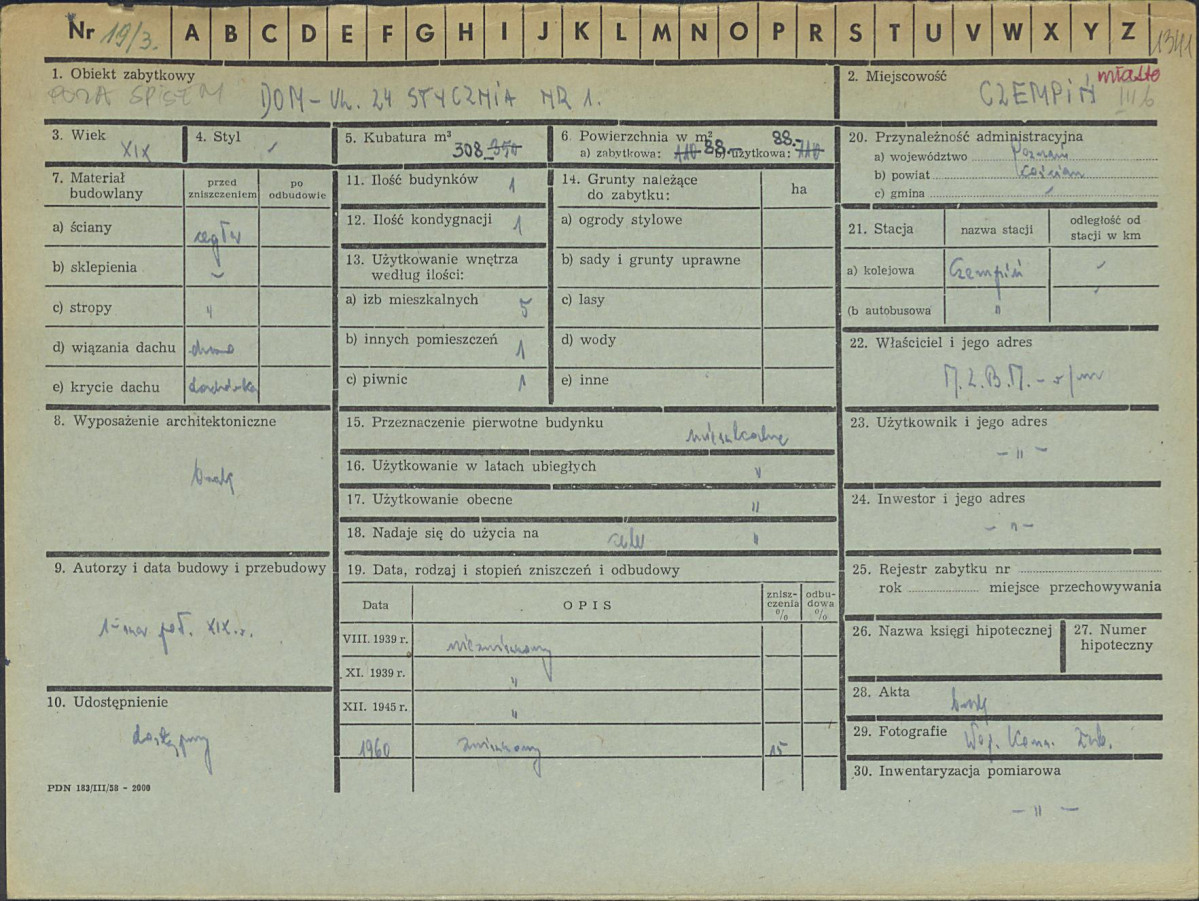 Nr 19/3. A B C D E F G H I J K L M N O P R S T U V W X Y Z 1341
1. Obiekt zabytkowy
POZA SPISEM DOM - UL. 24 STYCZNIA NR 1.
2. Miejscowość
CZEMPIŃ miasto
III b
3. Wiek
XIX
4. Styl
5. Kubatura m³
308 350
6. Powierzchnia w m²
a) zabytkowa: 110 88 b) użytkowa: 110 88.
7. Materiał budowlany
przed zniszczeniem
po odbudowie
a) ściany cegła
b) sklepienia
c) stropy "
d) wiązania dachu drewno
e) krycie dachu dachówka
8. Wyposażenie architektoniczne
brak
9. Autorzy i data budowy i przebudowy
poł. XIX w.
10. Udostępnienie
dostępny
PDN 183/III/58 - 2000
11. Ilość budynków 1
12. Ilość kondygnacji 1
13. Użytkowanie wnętrza według ilości:
a) izb mieszkalnych 5
b) innych pomieszczeń 1
c) piwnic 1
14. Grunty należące do zabytku:
ha
a) ogrody stylowe
b) sady i grunty uprawne
c) lasy
d) wody
e) inne
15. Przeznaczenie pierwotne budynku mieszkalne
16. Użytkowanie w latach ubiegłych "
17. Użytkowanie obecne "
18. Nadaje się do użycia na cele "
19. Data, rodzaj i stopień zniszczeń i odbudowy
Data
OPIS
znisz-czenia %
odbu-dowa %
VIII. 1939 r. niezniszczony
XI. 1939 r. "
XII. 1945 r. "
1960 zniszczony 15
20. Przynależność administracyjna
a) województwo Poznań
b) powiat Kościan
c) gmina
21. Stacja
nazwa stacji
odległość od stacji w km
a) kolejowa Czempiń
(b autobusowa "
22. Właściciel i jego adres
M.Z.B.M. - w/m
23. Użytkownik i jego adres
- " -
24. Inwestor i jego adres
- " -
25. Rejestr zabytku nr
rok miejsce przechowywania
26. Nazwa księgi hipotecznej
27. Numer hipoteczny
28. Akta brak
29. Fotografie Woj. Kons. Zab.
30. Inwentaryzacja pomiarowa
- " -